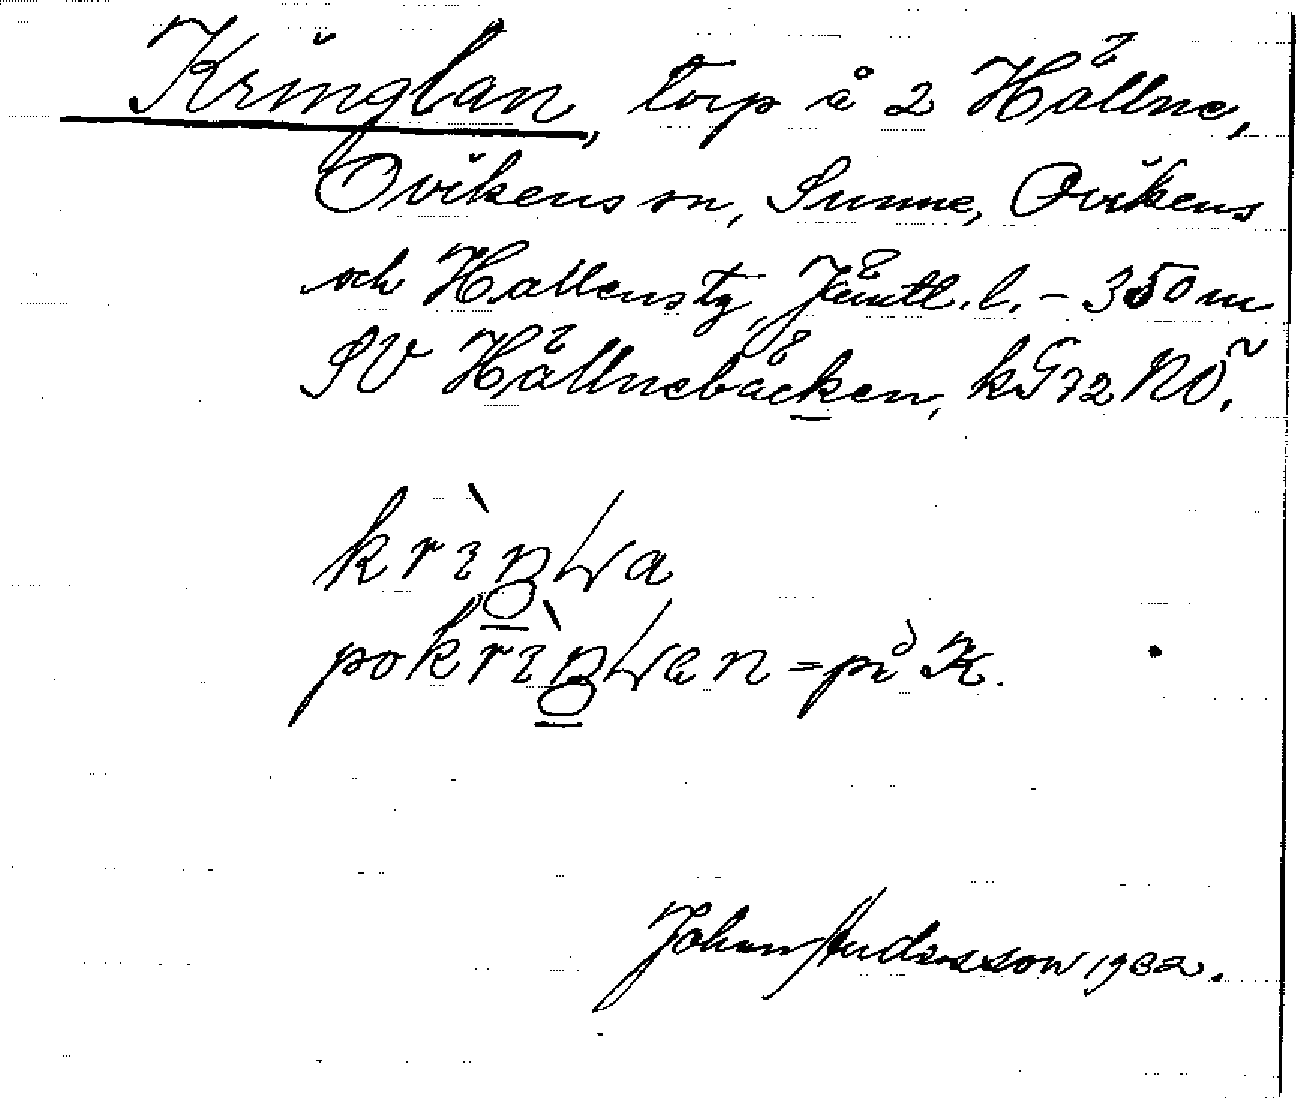 Kringlan, torp å 2 Hällne,
Ovikens sn, Sunne, Ovikens
och Hallens tg, Jämtl. l. – 350 m
SV Hällnebäcken, kG72 NO.
pokrıŋɬan = på K.
Johan Andersson 1932.